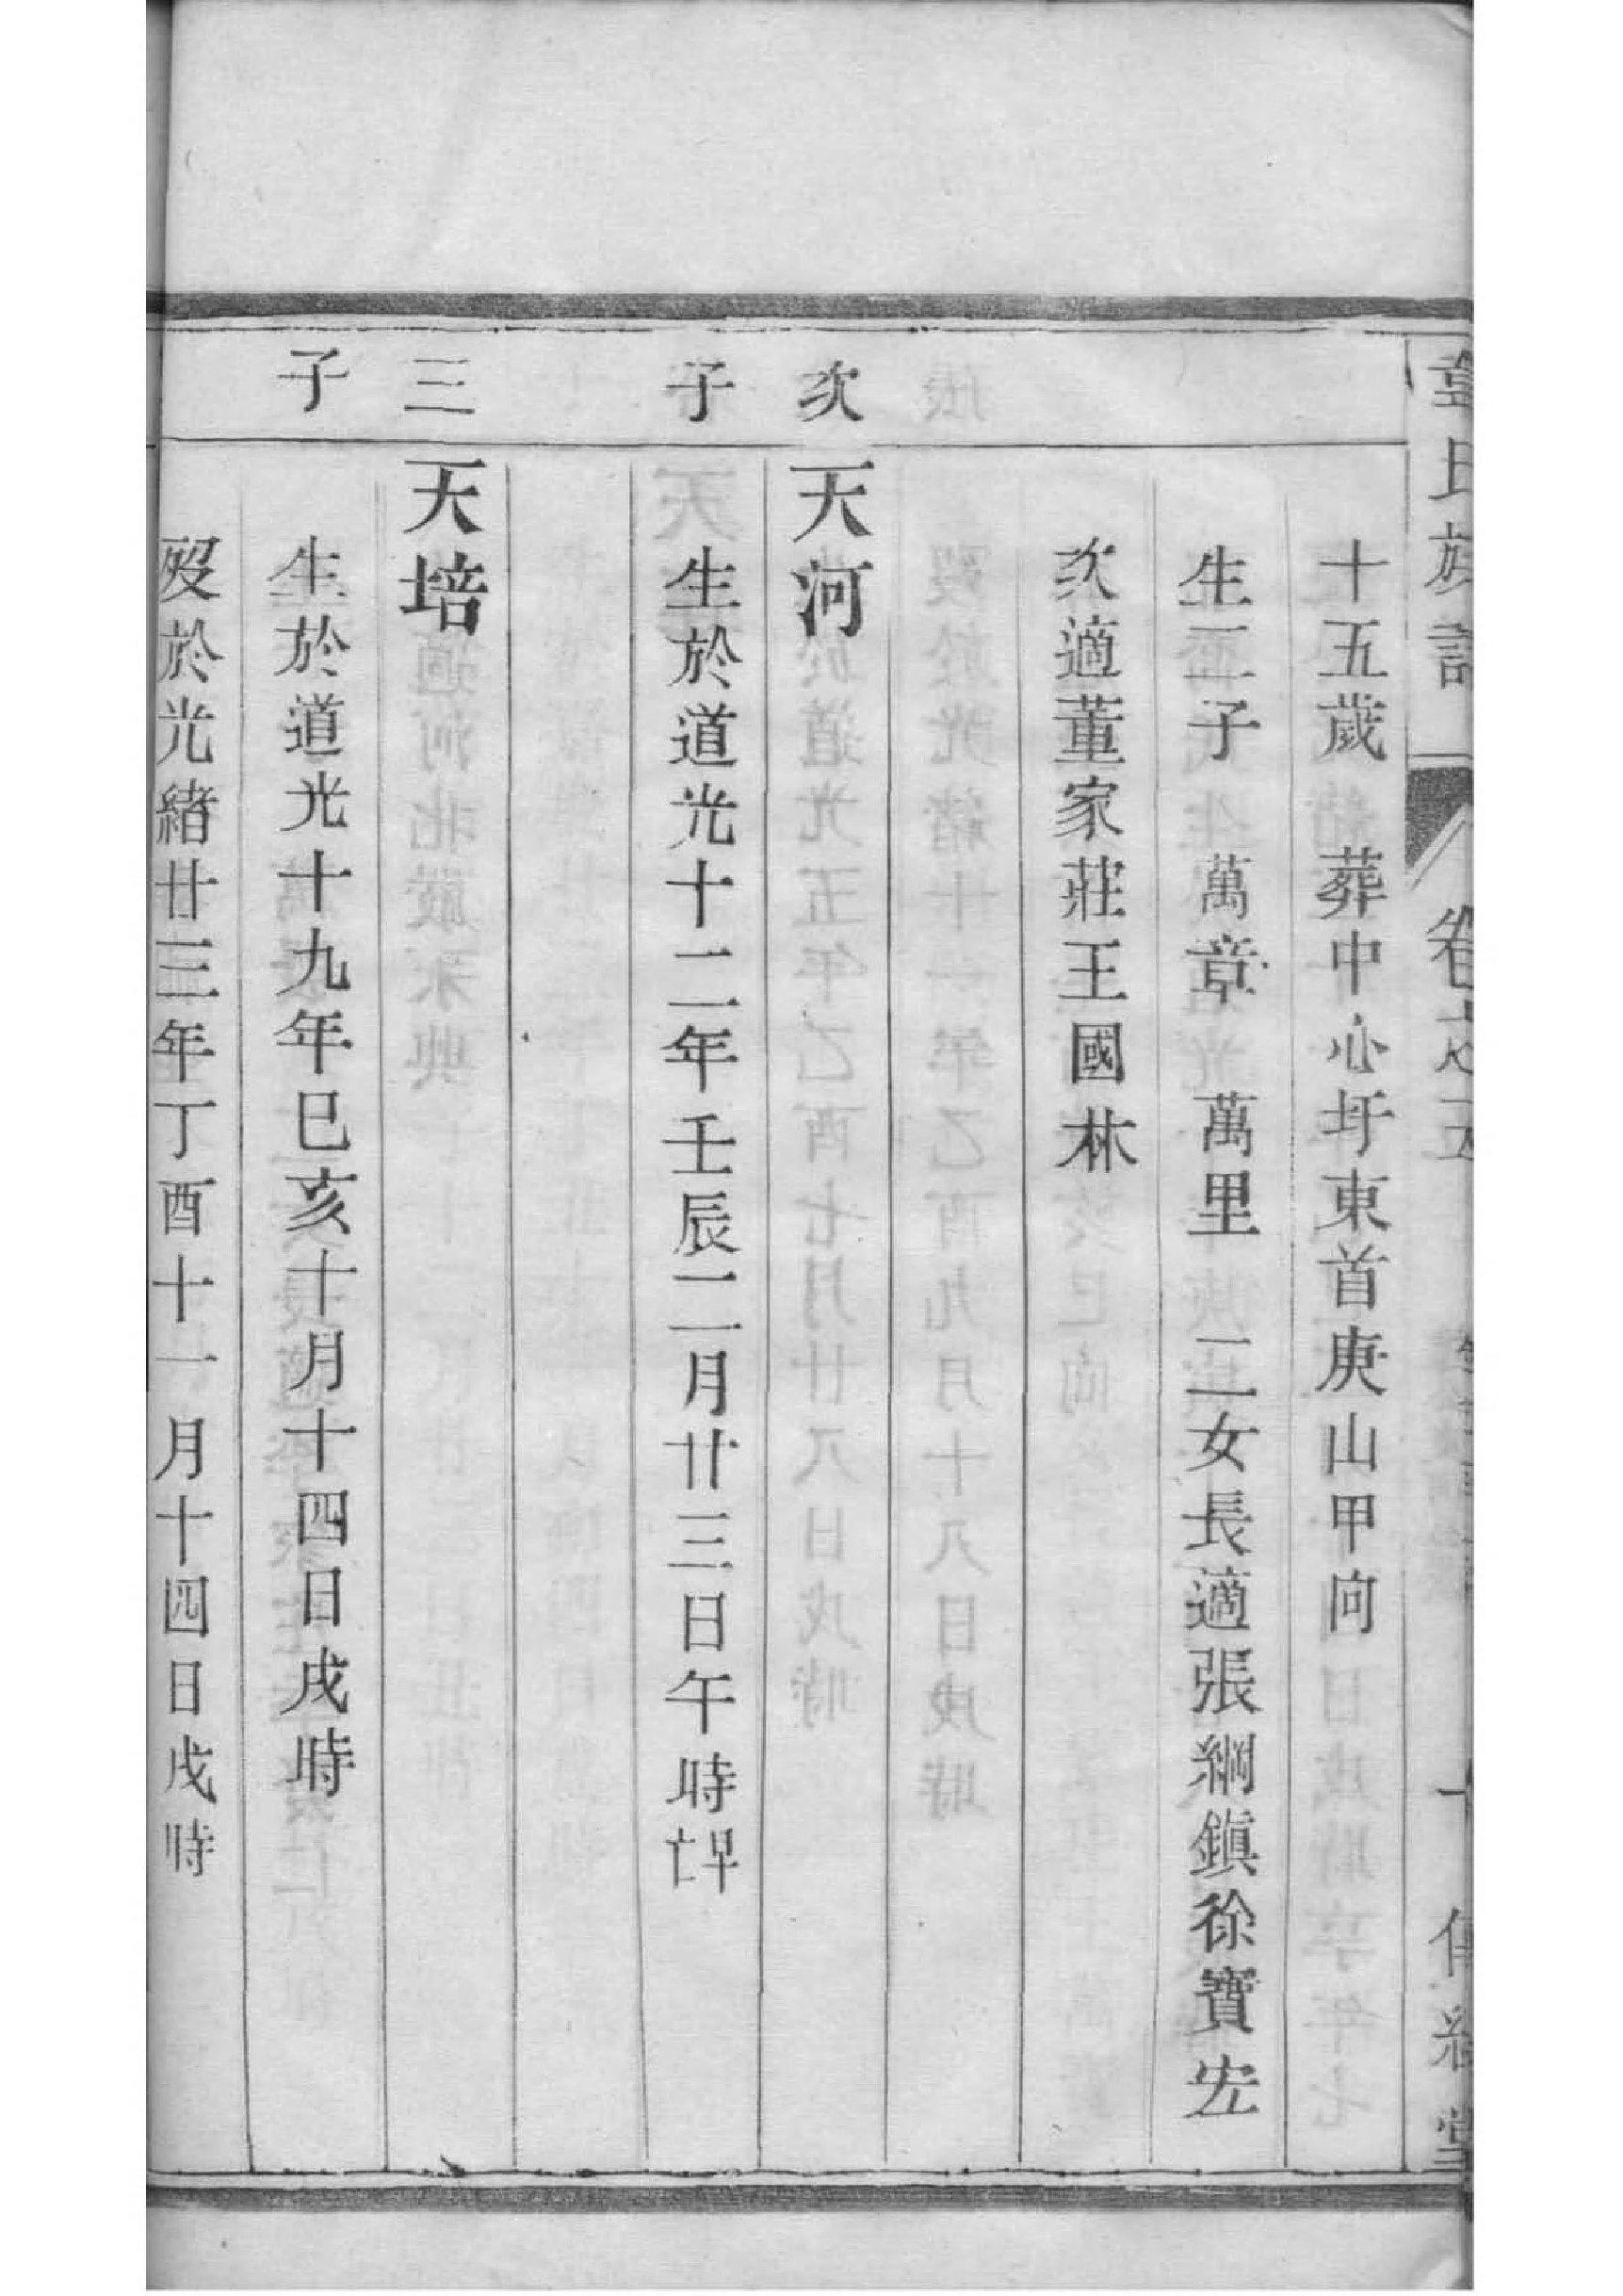 氏族譜 卷
十五歲 葬中心圩東首庚山甲向
生二子 萬章 萬里 二女長適張綱鎮徐寶宏
次適董家莊王國林
次子
天河
生於道光十二年壬辰二月廿三日午時早亡
三子
天培
生於道光十九年巳亥十月十四日戌時
歿於光緒廿三年丁酉十一月十四日戌時